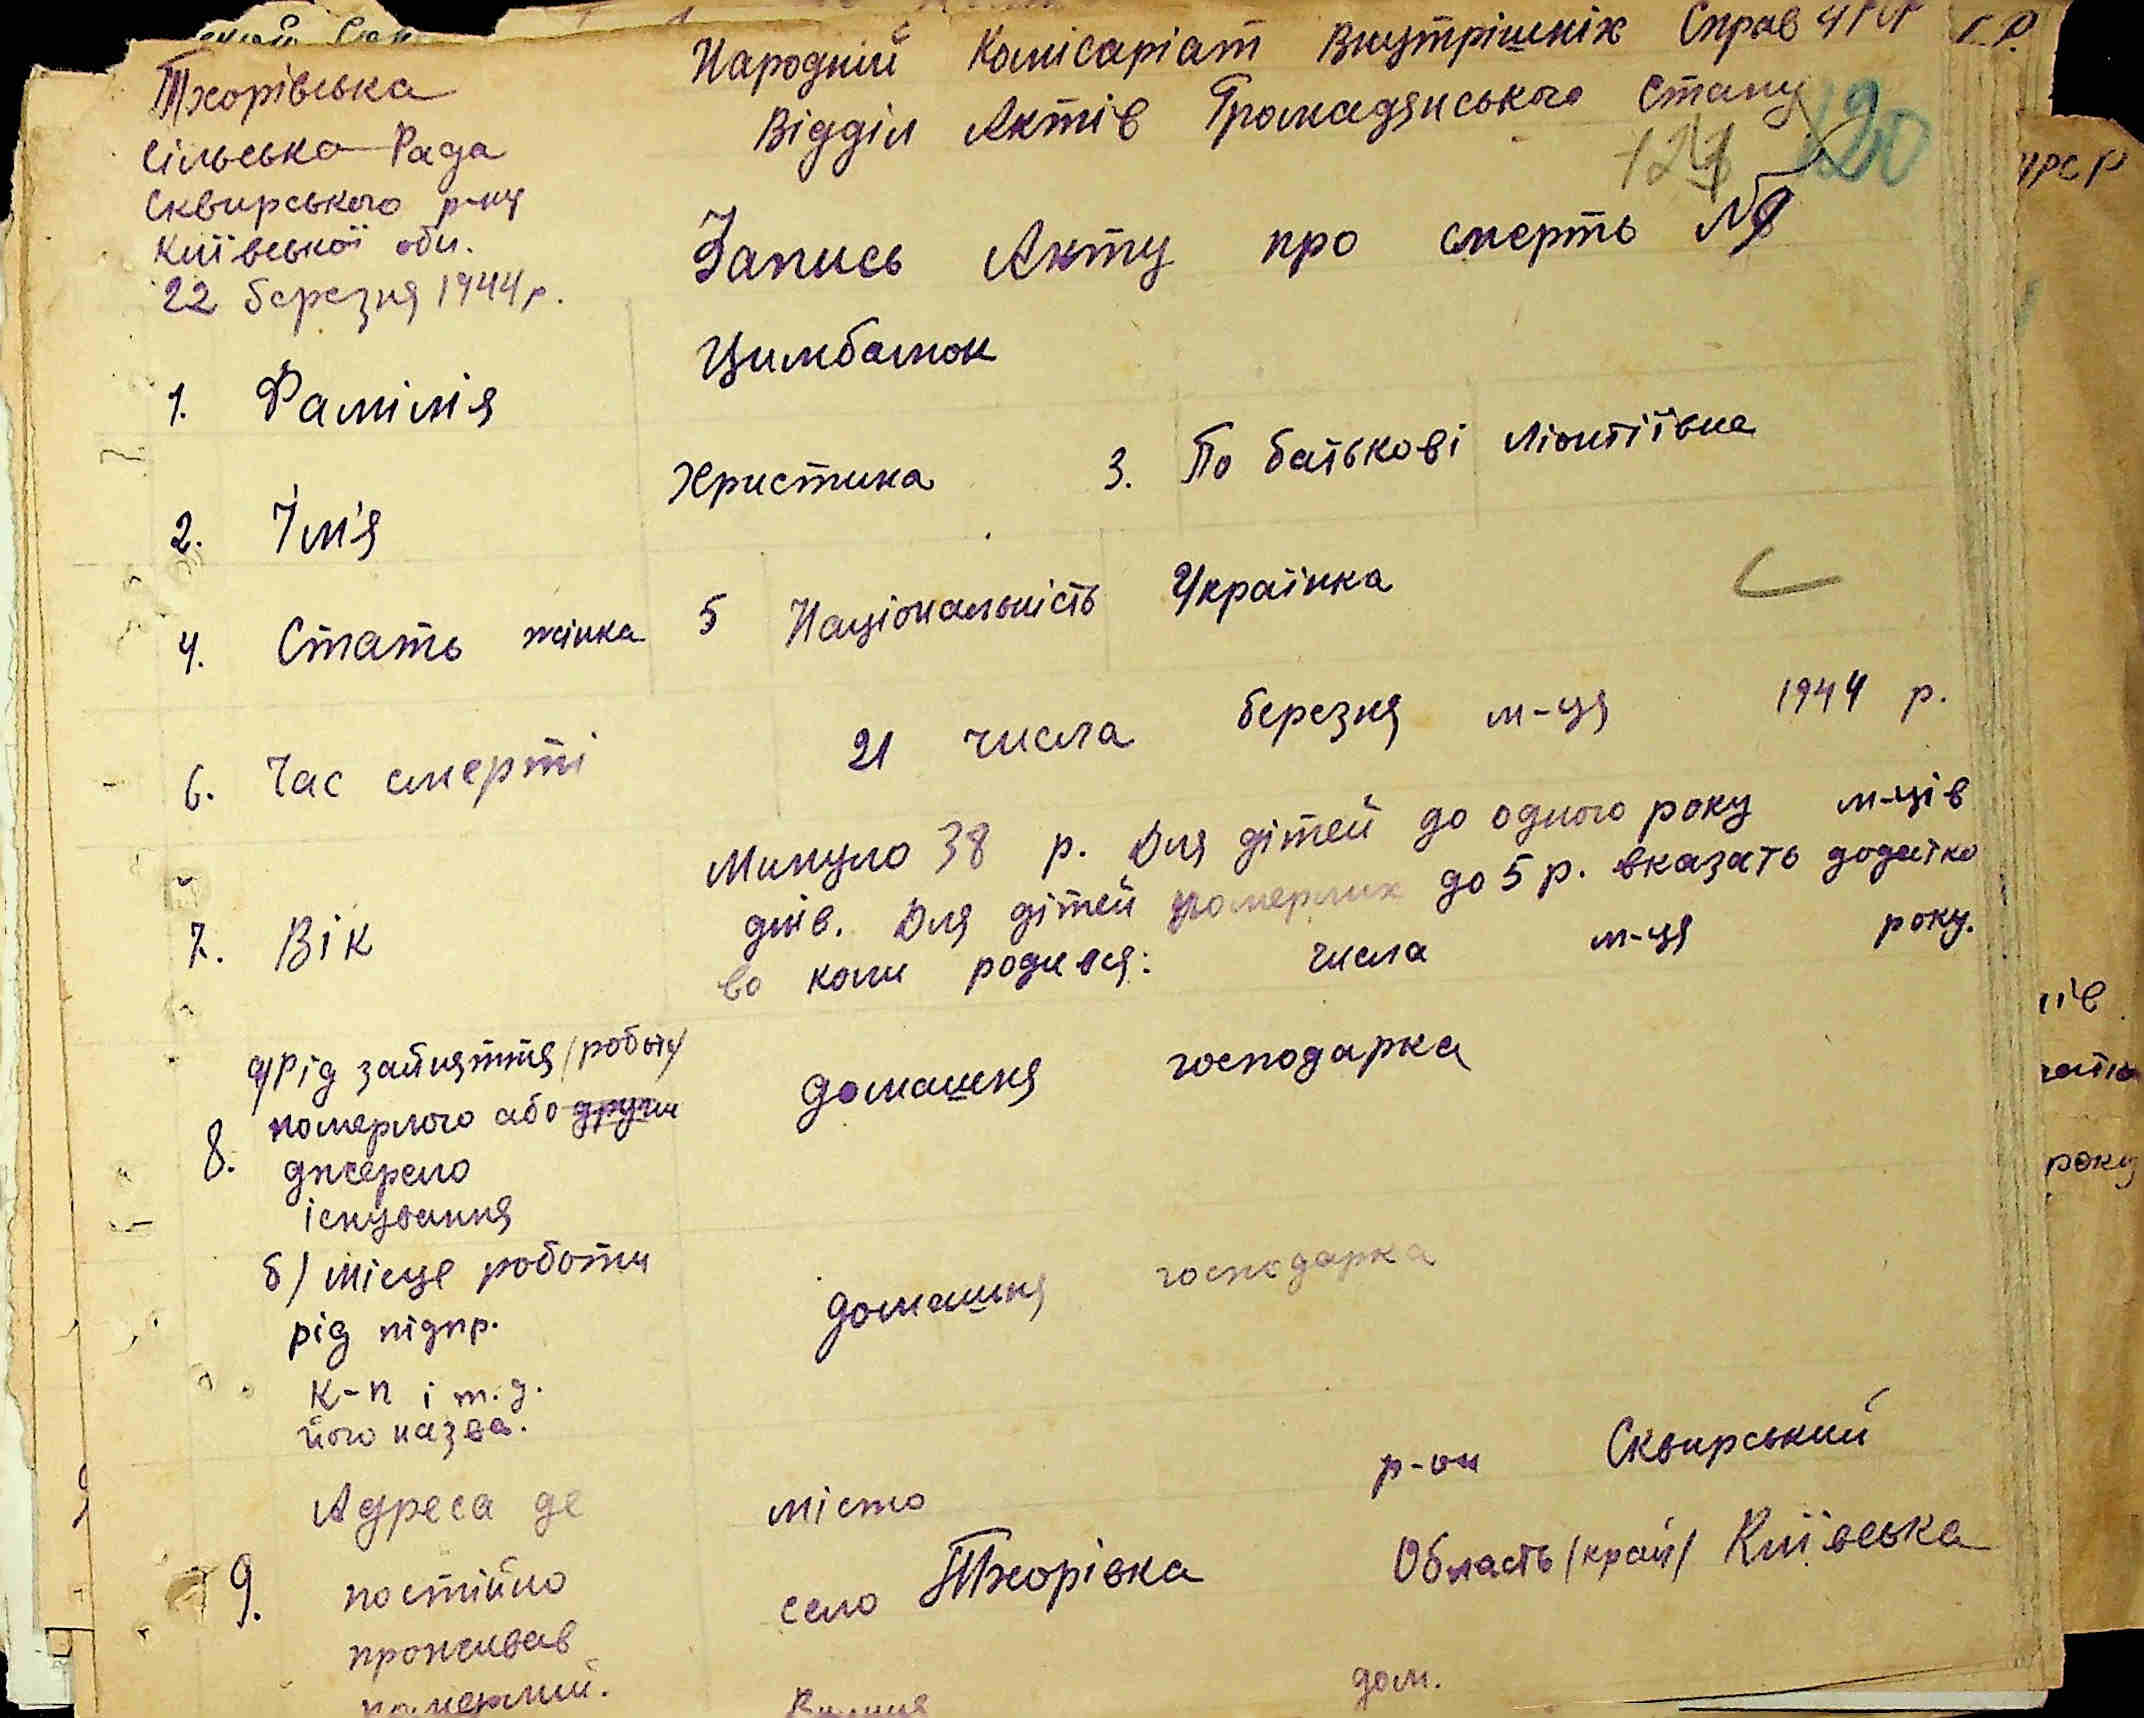 Тхорівська
сільська Рада
Сквирського р-ну
Київської обл.
22 березня 1944 р.
Народній Комісаріат Внутрішніх Справ УРСР
Відділ Актів Громадянського Стану
121 120
Запись Акту про смерть №
1. Фамілія Цимбалюк
2. Ім'я Христина 3. По батькові Ліонтіївна
4. Стать жінка 5 Національність Українка
6. Час смерті 21 числа березня м-ця 1944 р.
7. Вік Минуло 38 р. Для дітей до одного року м-ців
днів. Для дітей померлих до 5 р. вказать додатко
во коли родився: числа м-ця року.
8. а/ Рід зайняття /робота/
померлого або други
джерело
існування
домашня господарка
б/ місце роботи
рід підпр.
к-п і т.д.
його назва.
домашня господарка
9. Адреса де
постійно
проживав
померлий.
місто р-он Сквирський
село Тхорівка Область /край/ Київська
дом.
УРСР
ців
року